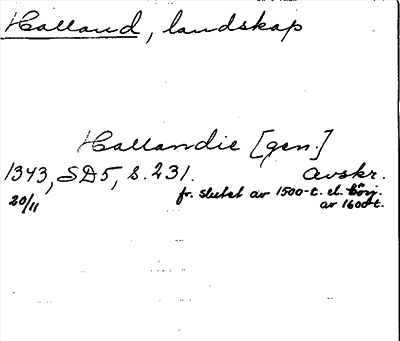 Halland, landskap
Hallandie [gen.]
1343, SD5, s. 231. Avskr.
20/11 fr. slutet av 1500-t. el. börj.
av 1600-t.